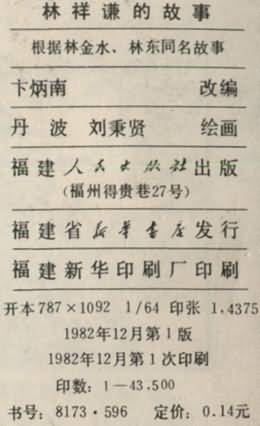 林祥谦的故事
根据林金水、林东同名故事
卞炳南 改编
丹波 刘秉贤 绘画
福建人民出版社出版
(福州得贵巷27号)
福建省新华书店发行
福建新华印刷厂印刷
开本787×1092 1/64 印张1.4375
1982年12月第1版
1982年12月第1次印刷
印数：1—43,500
书号：8173·596 定价：0.14元